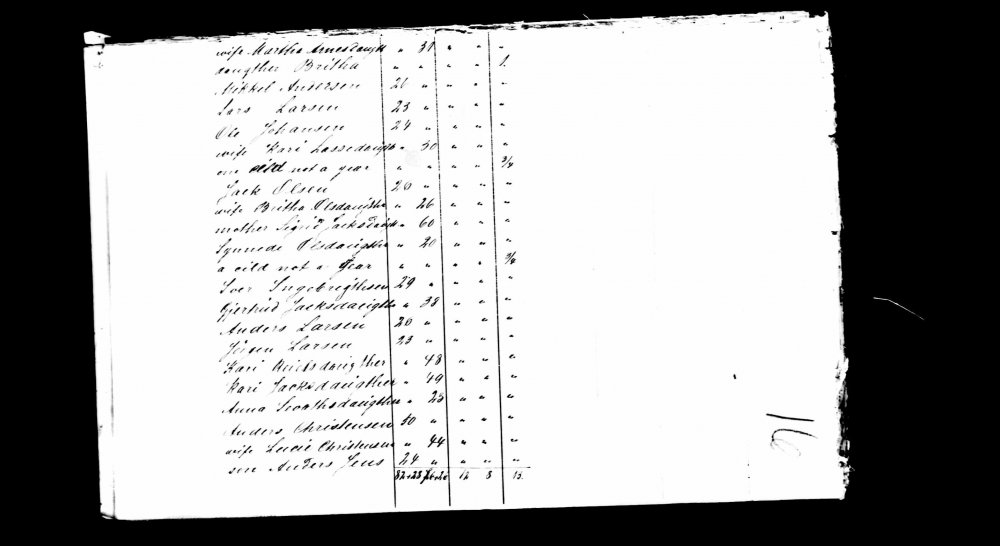 wife Martha Arnesdaugth " 31 " " "
daugther Britha " " " " 1.
Mikkel Andersen 26 " " " "
Lars Larsen 23 " " " "
Ole Johansen 24 " " " "
wife Kari Lassedaugth " 30 " " "
one cild not a year " " " " 3/4
Jack Olsen 20 " " " "
wife Britha Olsdaugther " 26 " " "
mother Sigrid Jacksdaugth " 60 " " "
Synnede Olsdaugther " 20 " " "
a cild not a year " " " " 3/4
Iver Ingebrigthsen 29 " " " "
Gjertrud Jacksdaugther " 38 " " "
Anders Larsen 20 " " " "
Larsen 23 " " " "
Kari daugther " 48 " " "
Kari Jacksdaugther " 49 " " "
Anna daugther " 23 " " "
Anders Christensen 50 " " " "
wife Lucie Christensen " 44 " " "
son Anders Jens 24 " " " "
12 8 13.